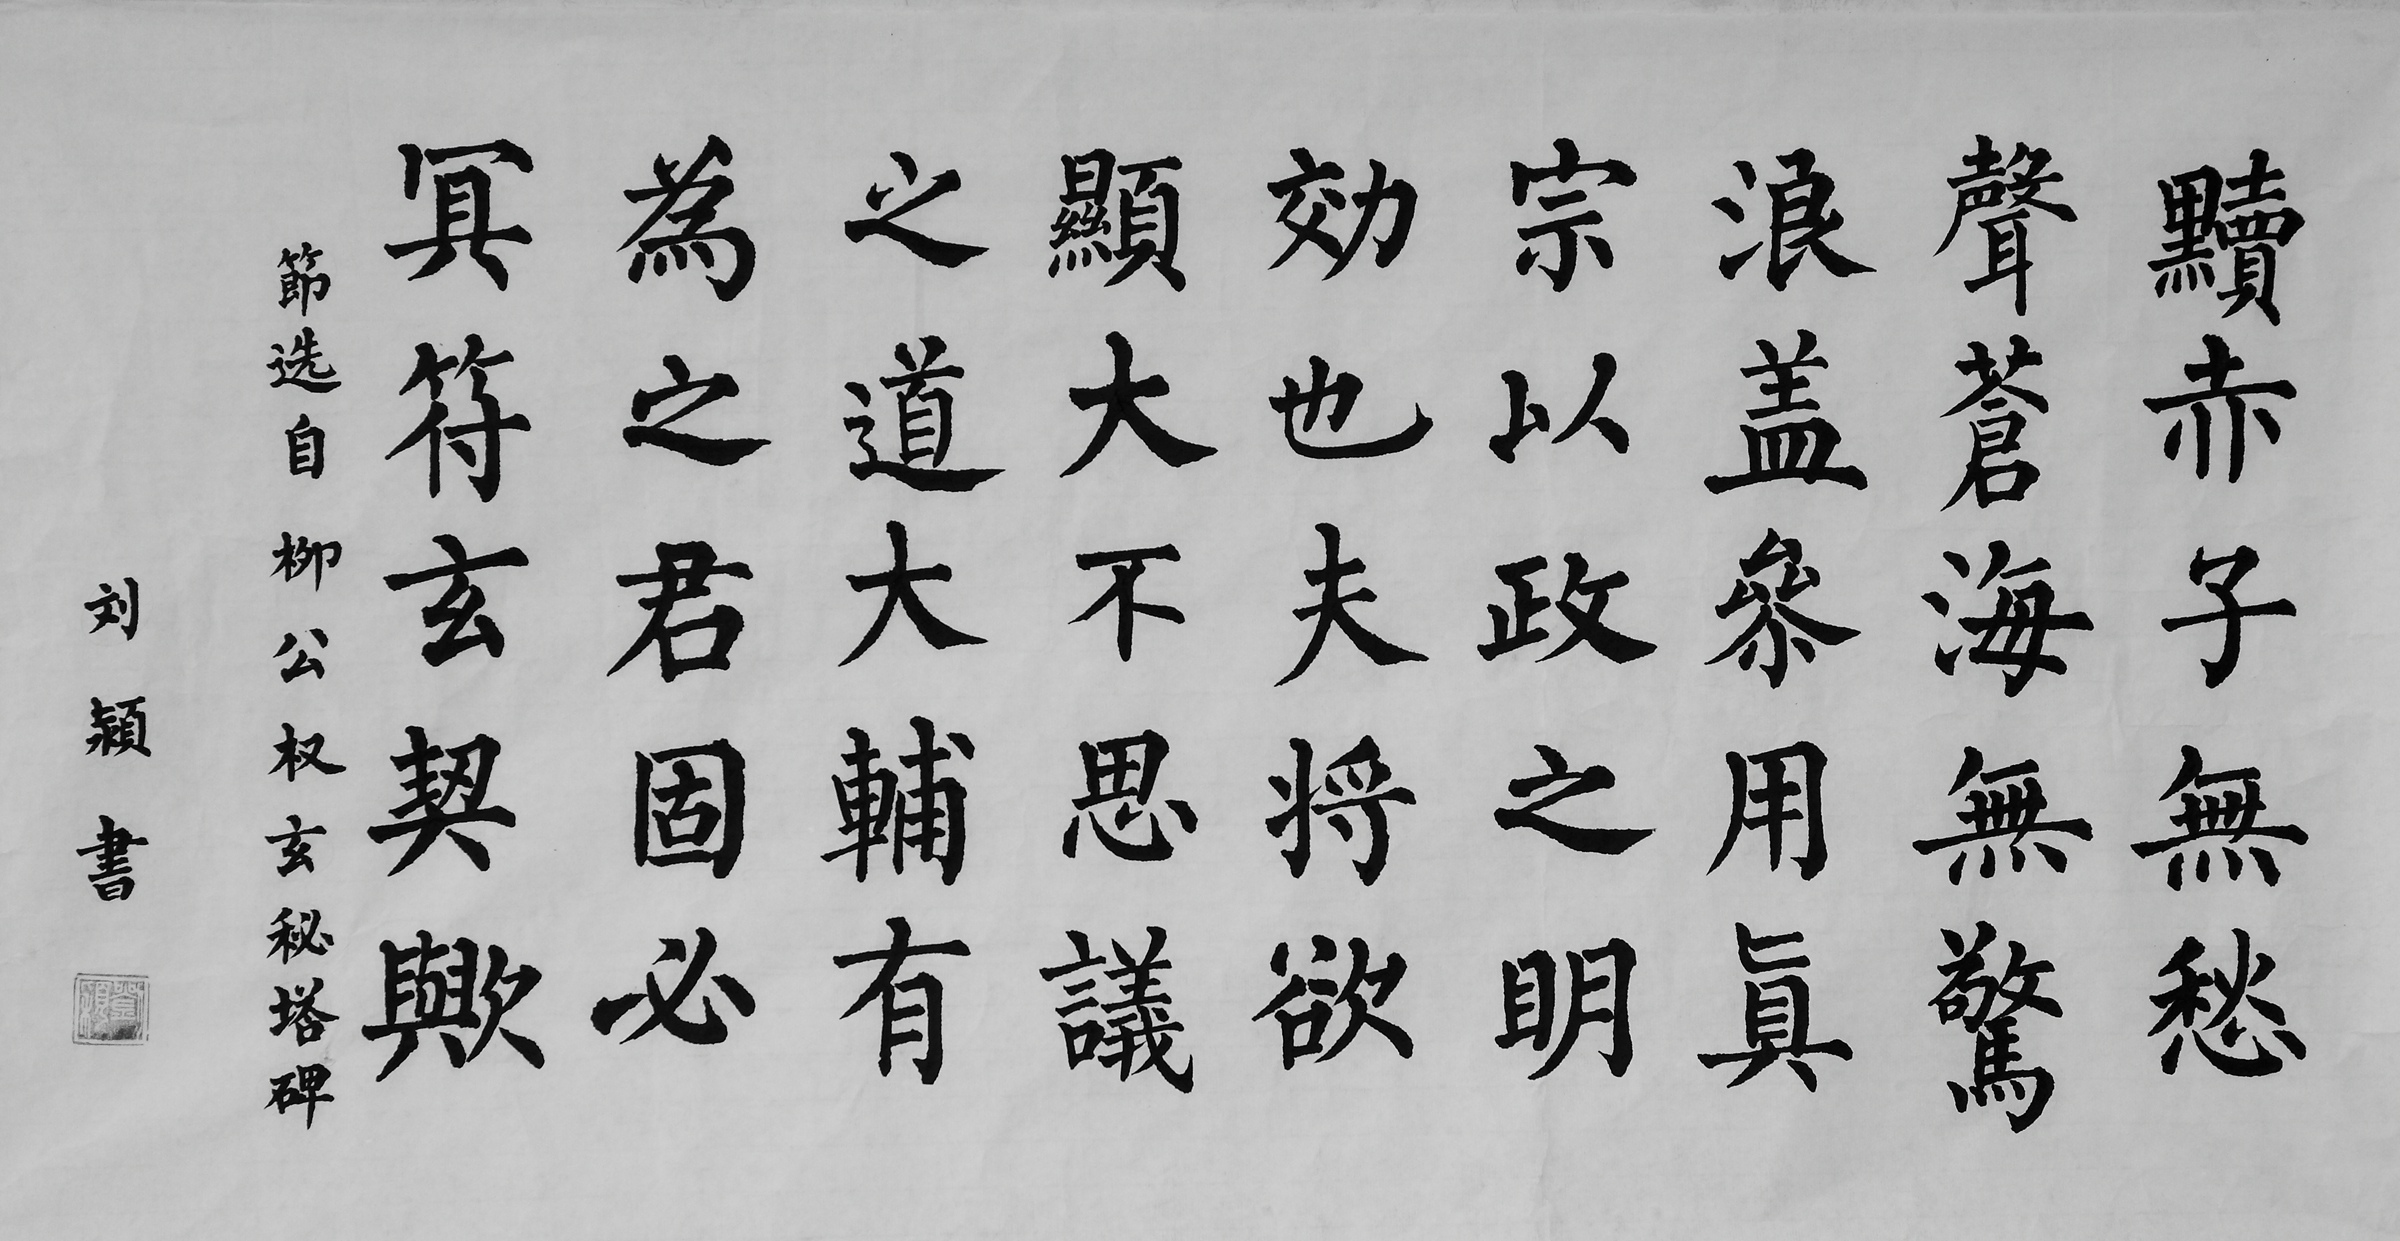 黷赤子無愁
聲蒼海無驚
浪盖叅用眞
宗以政之明
効也夫將欲
顯大不思議
之道大輔有
為之君固必
冥符玄契歟
節选自柳公权玄秘塔碑
刘颖書